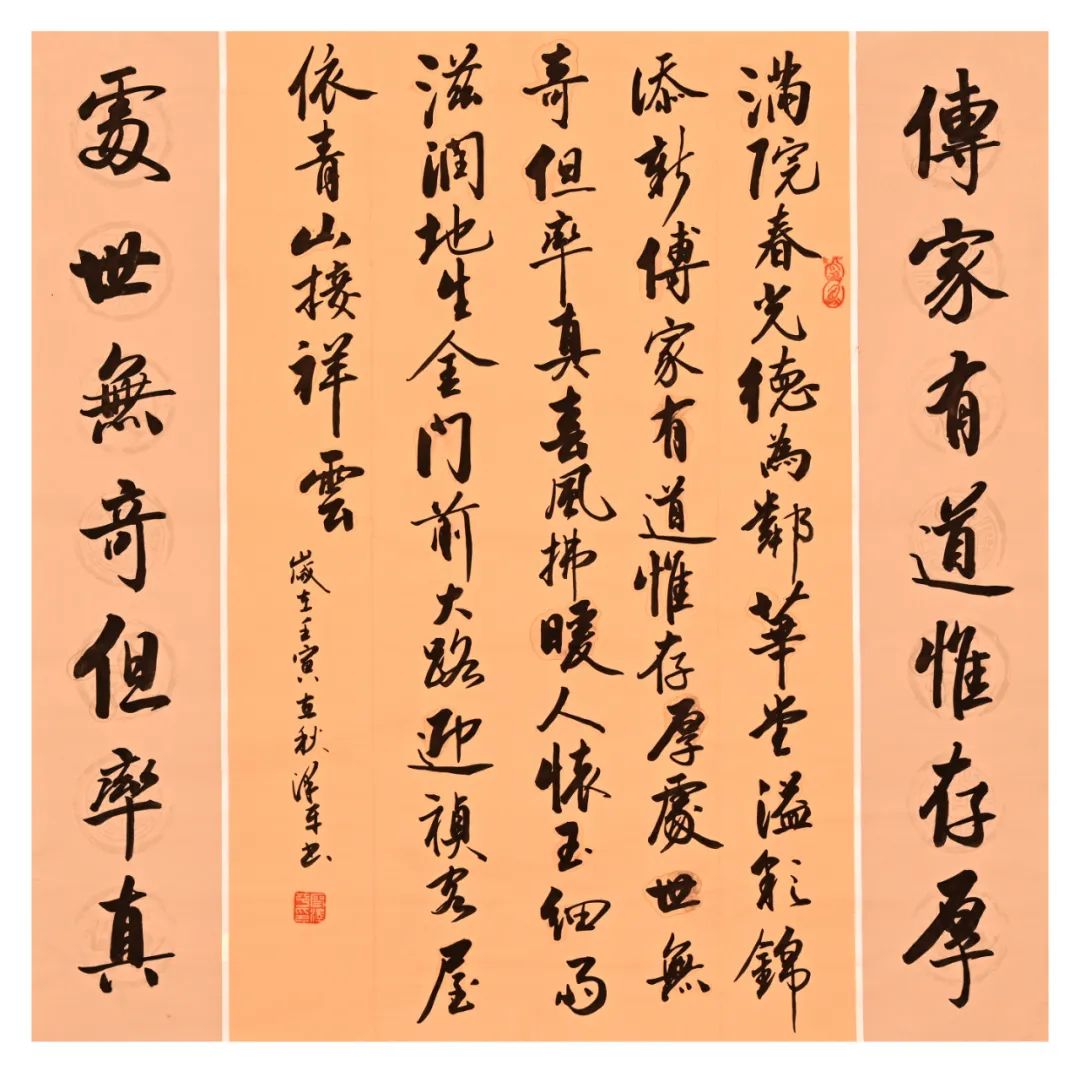 傳家有道惟存厚
滿院春光德為鄰華堂溢彩錦
添新傳家有道惟存厚處世無
奇但率真喜風拂暖人懷玉細雨
滋潤地生金門前大路迎禎客屋
依青山接祥雲
歲在壬寅秋澤東書
處世無奇但率真